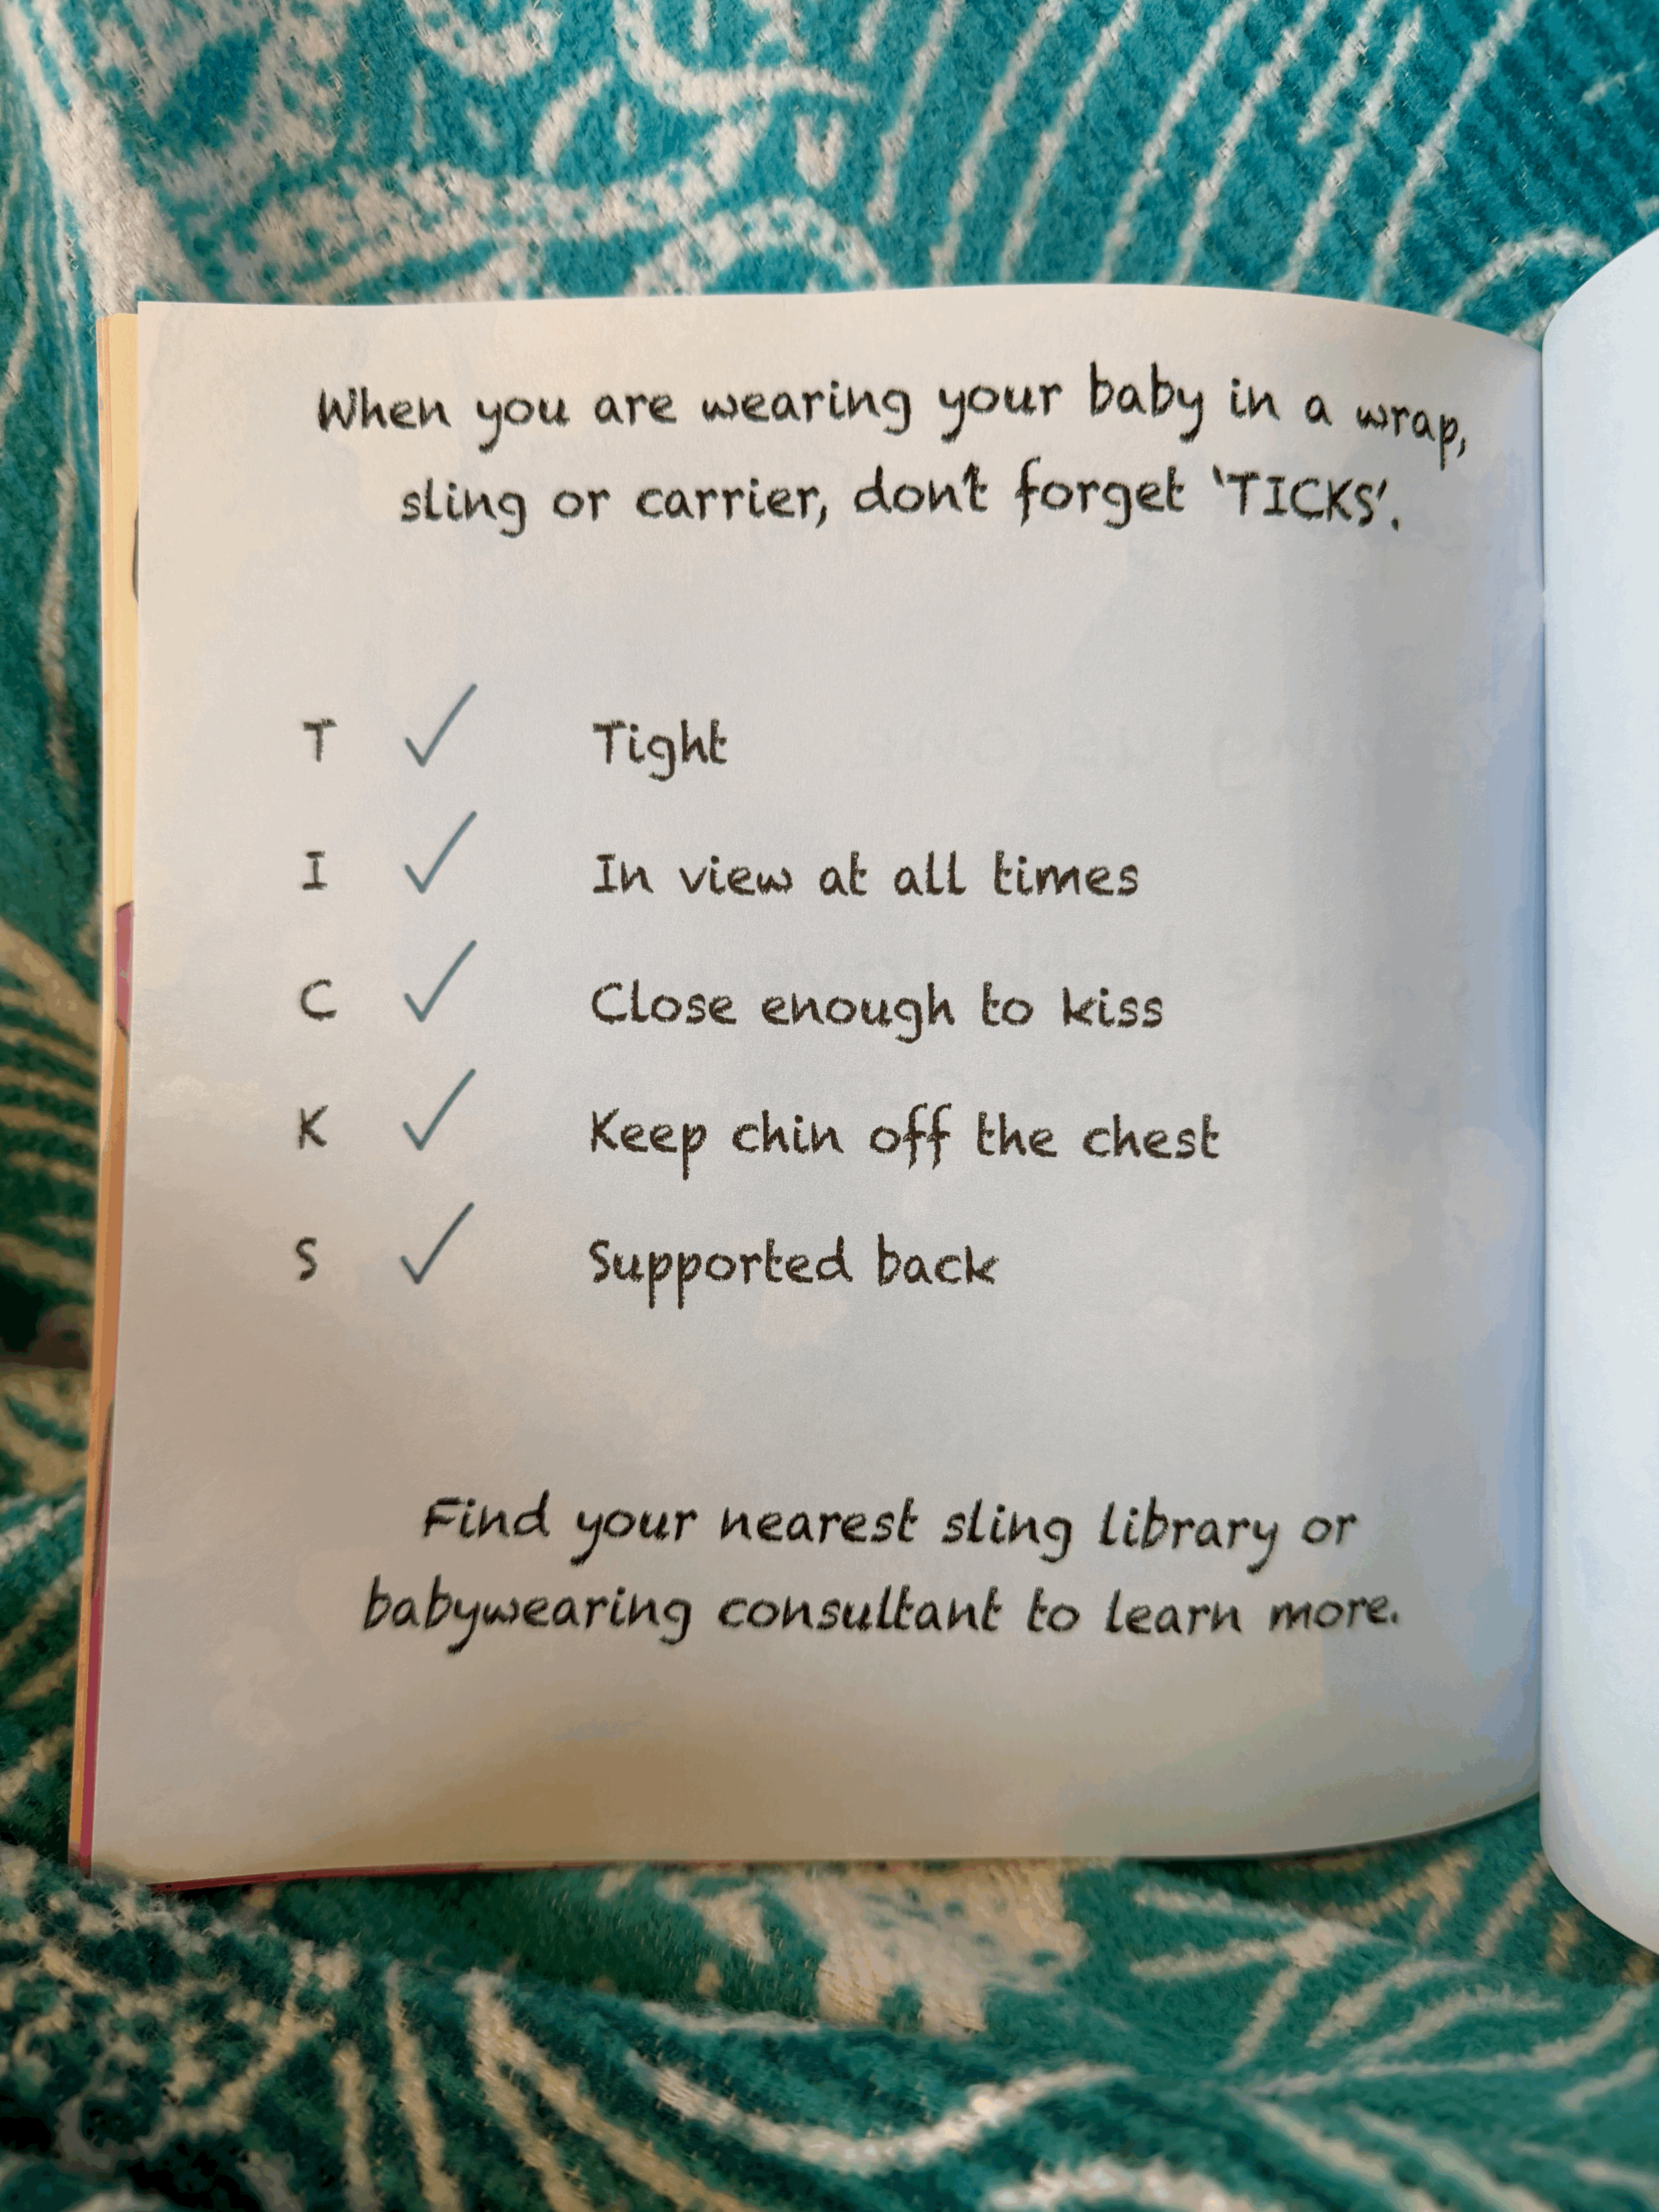 When you are wearing your baby in a wrap,
sling or carrier, don't forget 'TICKS'.
T ✓ Tight
I ✓ In view at all times
C ✓ Close enough to kiss
K ✓ Keep chin off the chest
S ✓ Supported back
Find your nearest sling library or
babywearing consultant to learn more.